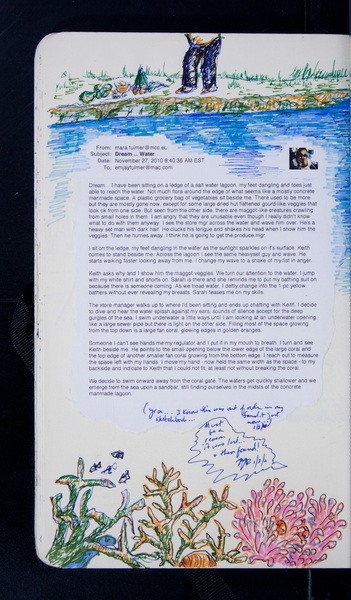 From: mara.fulmer@mcc.edu
Subject: Dream ... Water
Date: November 27, 2010 8:40:36 AM EST
To: emjayfulmer@mac.com
Dream... I have been sitting on a ledge of a salt water lagoon, my feet dangling and toes just
able to reach the water. Not much flora around the edge of what seems like a mostly concrete
manmade space. A plastic grocery bag of vegetables sit beside me. There used to be more
but they are mostly gone now, except for some large dried hut flattened gourd-like veggies that
look ok from one side. But seen from the other side, there are maggot-like creatures crawling
from small holes in them. I am angry that they are unusable even though I really didn't know
what to do with them anyway. I see the store mgr across the water and wave him over. He's a
heavy set man with dark hair. He clucks his tongue and shakes his head when I show him the
veggies. Then he hurries away. I think he is going to get the produce mgr.
I sit on the ledge, my feet dangling in the water as the sunlight sparkles on it's surface. Keith
comes to stand beside me. Across the lagoon I see the same heavyset guy and wave. He
starts walking faster looking away from me. I change my wave to a shake of my fist in anger.
Keith asks why and I show him the maggot veggies. We turn our attention to the water. I jump
with my white shirt and shorts on. Sarah is there and she reminds me to put my bathing suit on
because there is someone coming. As we tread water, I deftly change into the 1-pc yellow
bathers without ever revealing my breasts. Sarah teases me on my skills.
The store manager walks up to where I'd been sitting and ends up chatting with Keith. I decide
to dive and hear the water splash against my ears, sounds of silence accept for the deep
gurgles of the sea. I swim underwater a little ways until I am looking at an underwater opening,
like a large sewer pipe but there is light on the other side. Filling most of the space growing
from the top down is a large fan coral, glowing edges in golden oranges.
Someone I can't see hands me my regulator and I put it in my mouth to breath. I turn and see
Keith beside me. He points to the small opening below the lower edge of the large coral and
the top edge of another smaller fan coral growing from the bottom edge. I reach out to measure
the space left with my hands. I move my hand - now held the same width as the space - to my
backside and indicate to Keith that I could not fit, at least not without breaking the coral.
We decide to swim onward away from the coral gate. The waters get quickly shallower and we
emerge from the sea upon a sandbar, still finding ourselves in the midsts of the concrete
manmade lagoon.
(yea... I know this was not in my
sketchbook...
must
be a
reason
it was lost
+ then found!